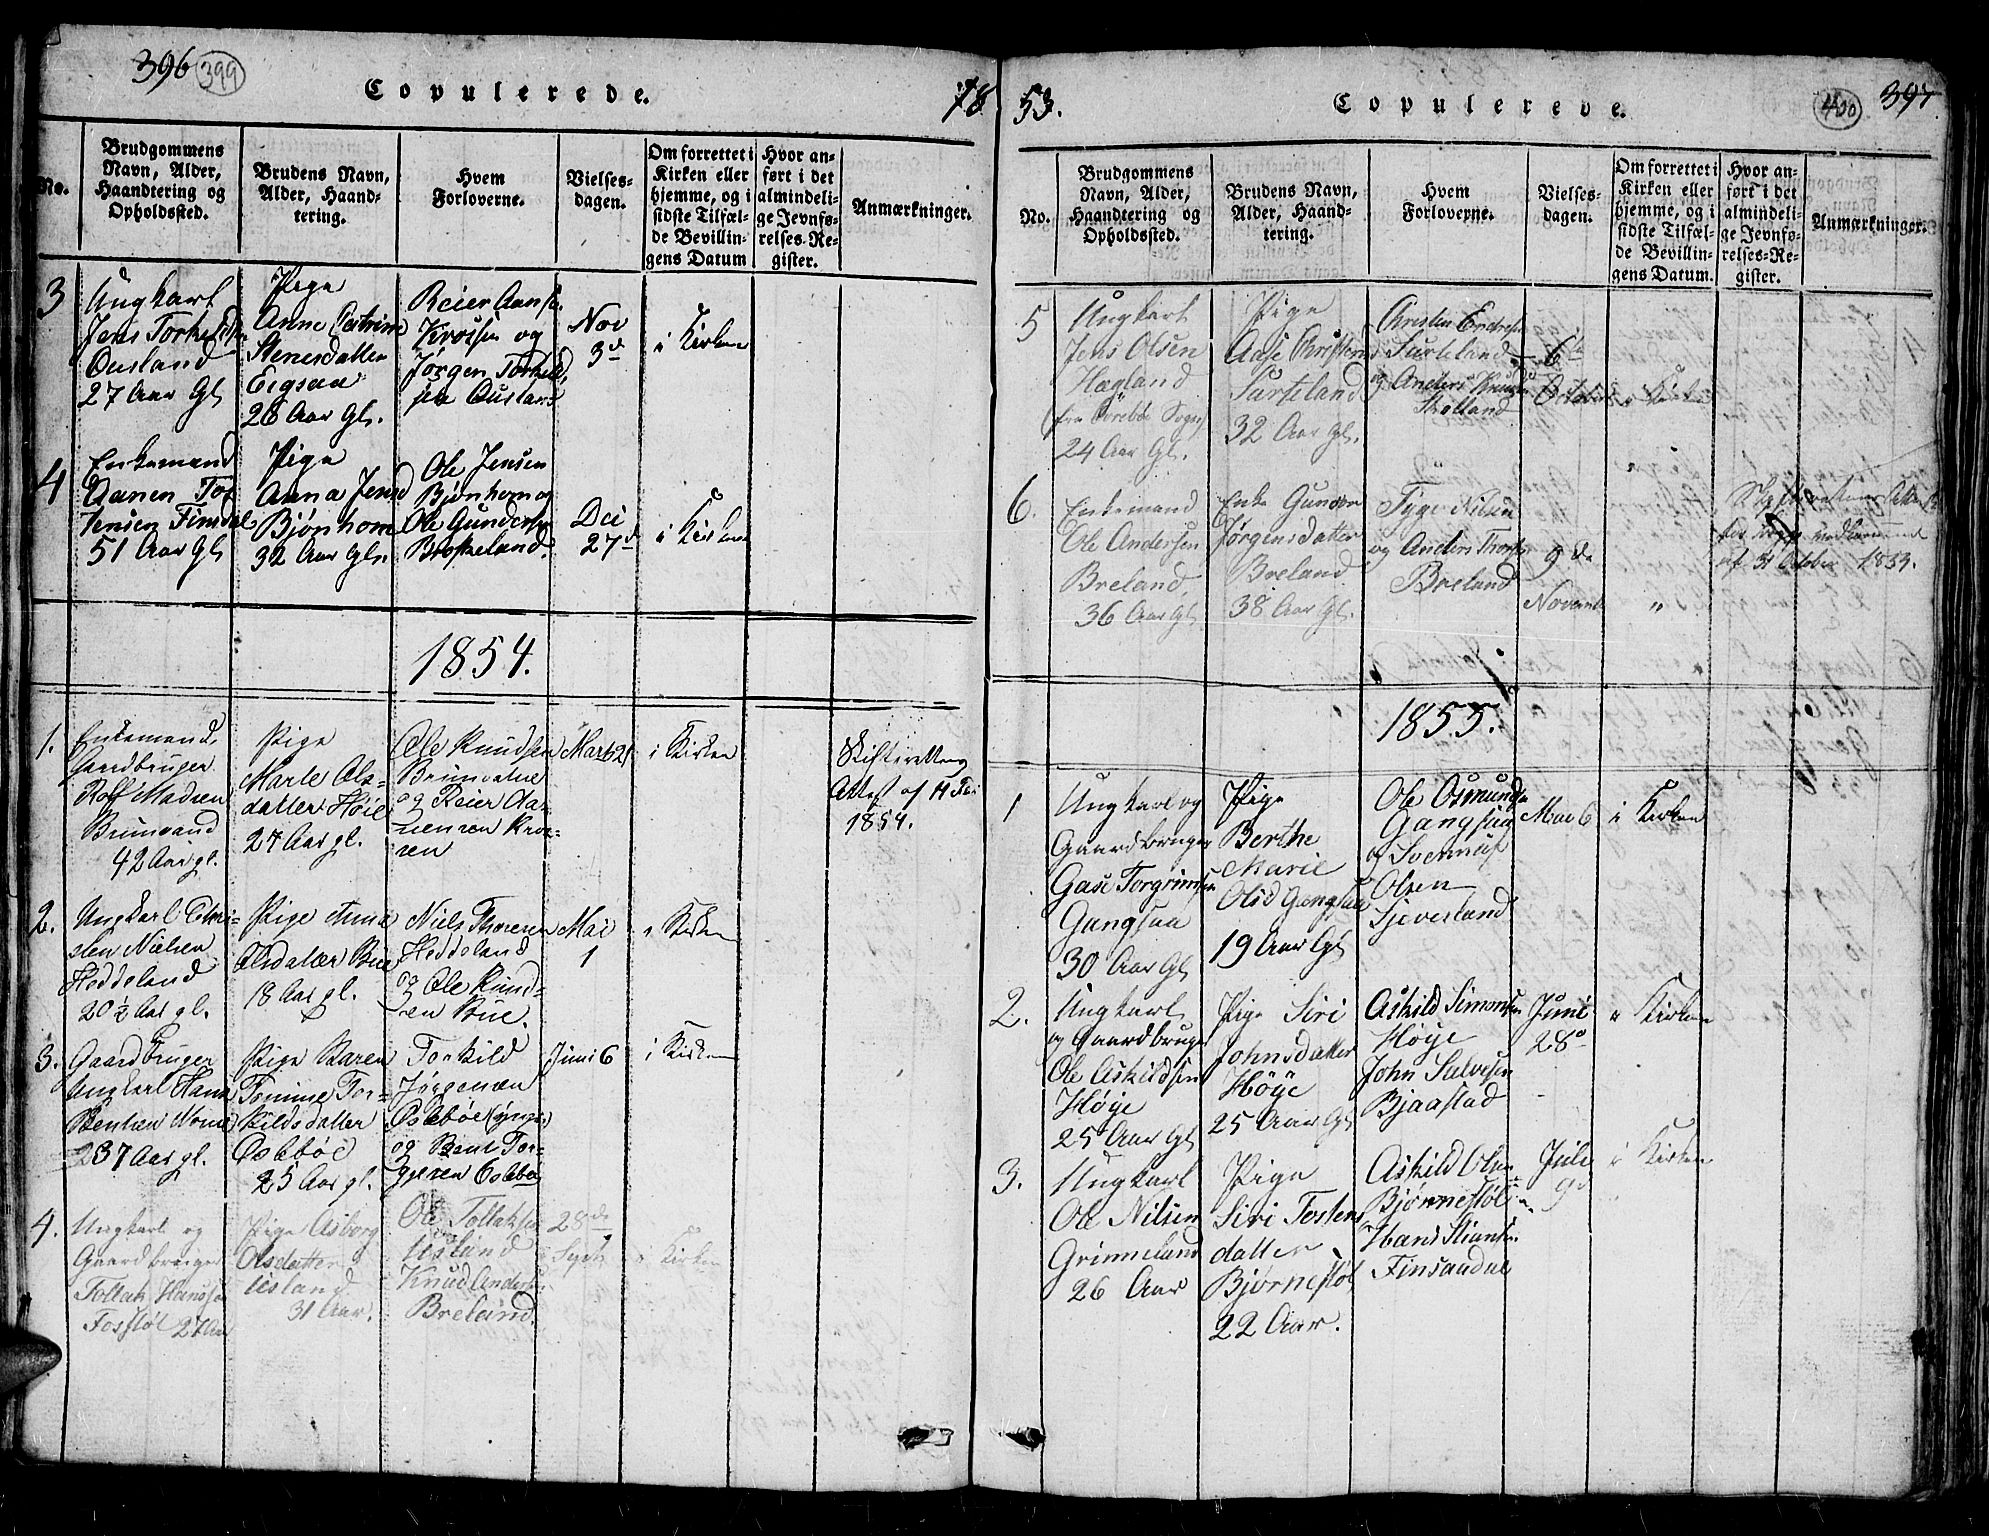 396 (399)
Copulerede.
18
No.
Brudgommens Navn, Alder, Haandtering og Opholdssted.
Brudens Navn, Alder, Haandtering.
Hvem Forloverne.
Vielsesdagen.
Om forrettet i Kirken eller hjemme, og i sidste Tilfælde Bevillingens Datum
Hvor anført i det almindelige Jevnførelses-Register.
Anmærkninger.
3
Ungkarl
Jens Torkeldsen
Ousland
27 Aar Gl
Pige
Anne Catrine
Stenersdatter
Eigsaa
28 Aar Gl.
Reier Aansen
Krossen og
Jørgen Torkild
sen Ousland
Nov
3d
i Kirken
4
Enkemand
Aanen Tor
jensen Finsdal
51 Aar Gl
Pige
Anna Jensd
Bjønhom
32 Aar Gln
Ole Jensen
Bjønhom og
Ole Gunderse
Broskeland
Dei
27d
i Kirken
1854.
1.
Enkemand,
Gaardbruger
Rolf Madsen
Brunvand
42 Aar gl.
Pige
Marte Ols-
datter Höie
27 Aar gl.
Ole Knudsen
Brunvatne
og Reier Aa-
nensen Kros-
sen
Marts 21
i Kirken
Skifterettens
Attest af 14 Fei
1854.
2.
Ungkarl Chri-
sten Nielsen
Heddeland
20½ Aar gl.
Pige Anna
Olsdatter Bue
18 Aar gl.
Niels Thoresen
Heddeland
og Ole Knud-
sen Bue.
Mai
1
i Kirken
3.
Gaardbruger
Ungkarl Hans
Bentsen Nome
37 Aar gl.
Pige Karen
Tomine Tor-
kildsdatter
Osleböe
25 Aar gl.
Torkild
Jørgensen
Oslebøe (yngre)
og Bent Tor-
gersen Oslebø
Juni 6
i Kirken
4.
Ungkarl og
Gaardbruger
Tollak Hansse
Fosstøl 27 Aar
Pige Asborg
Olsdatter
Usland
31 Aar.
Ole Tollaksen
Usland
Knud Anderse
Breland.
28de
Septb
i Kirken
53.
Copulerede.
(400) 397
No.
Brudgommens Navn, Alder, Haandtering og Opholdssted.
Brudens Navn, Alder, Haandtering.
Hvem Forloverne.
Vielsesdagen.
Om forrettet i Kirken eller hjemme, og i sidste Tilfælde Bevillingens Datum.
Hvor anført i det almindelige Jevnførelses-Register.
Anmærkninger.
5
Ungkarl
Jens Olsen
Hægland
24 Aar Gl.
Pige
Aase Christens
Surteland
32 Aar Gl.
Christen Endresen
Surteland
og Anders Knuds
Stølland
6te
October
i Kirken
6.
Enkemand
Ole Andersen
Breland,
36 Aar Gl
Enke Gunvor
Jörgensdatter
Breland
38 Aar Gl.
Tyge Nilsen
og Anders Thors
Breland
9de
Novemb
"
af 31 October 1853.
1855.
1
Ungkarl og
Gaardbruger
Gase Torgrimsen
Gangsaa
30 Aar Gl
Pige
Berthe
Marie
Olsd Gangsaa
19 Aar Gl
Ole Osmunds
Gangsaa
og Svennug
Olsen
Sjeverland
Mai 6
i Kirken
2.
Ungkarl
og Gaardbruge
Ole Askildsen
Høye
25 Aar Gl
Pige Siri
Johnsdatter
Høye
25 Aar Gl
Askild Simonsen
Høye
John Salvesen
Bjaastad
Juni
28
i Kirken
3.
Ungkarl
Ole Nilsen
Grimeland
26 Aar
Pige
Siri Tostens
datter
Bjørnestøl
22 Aar.
Askild Olsen
Bjørnestøl
Hans Stiansen
Finsaadal
Juli
9d
i Kirken